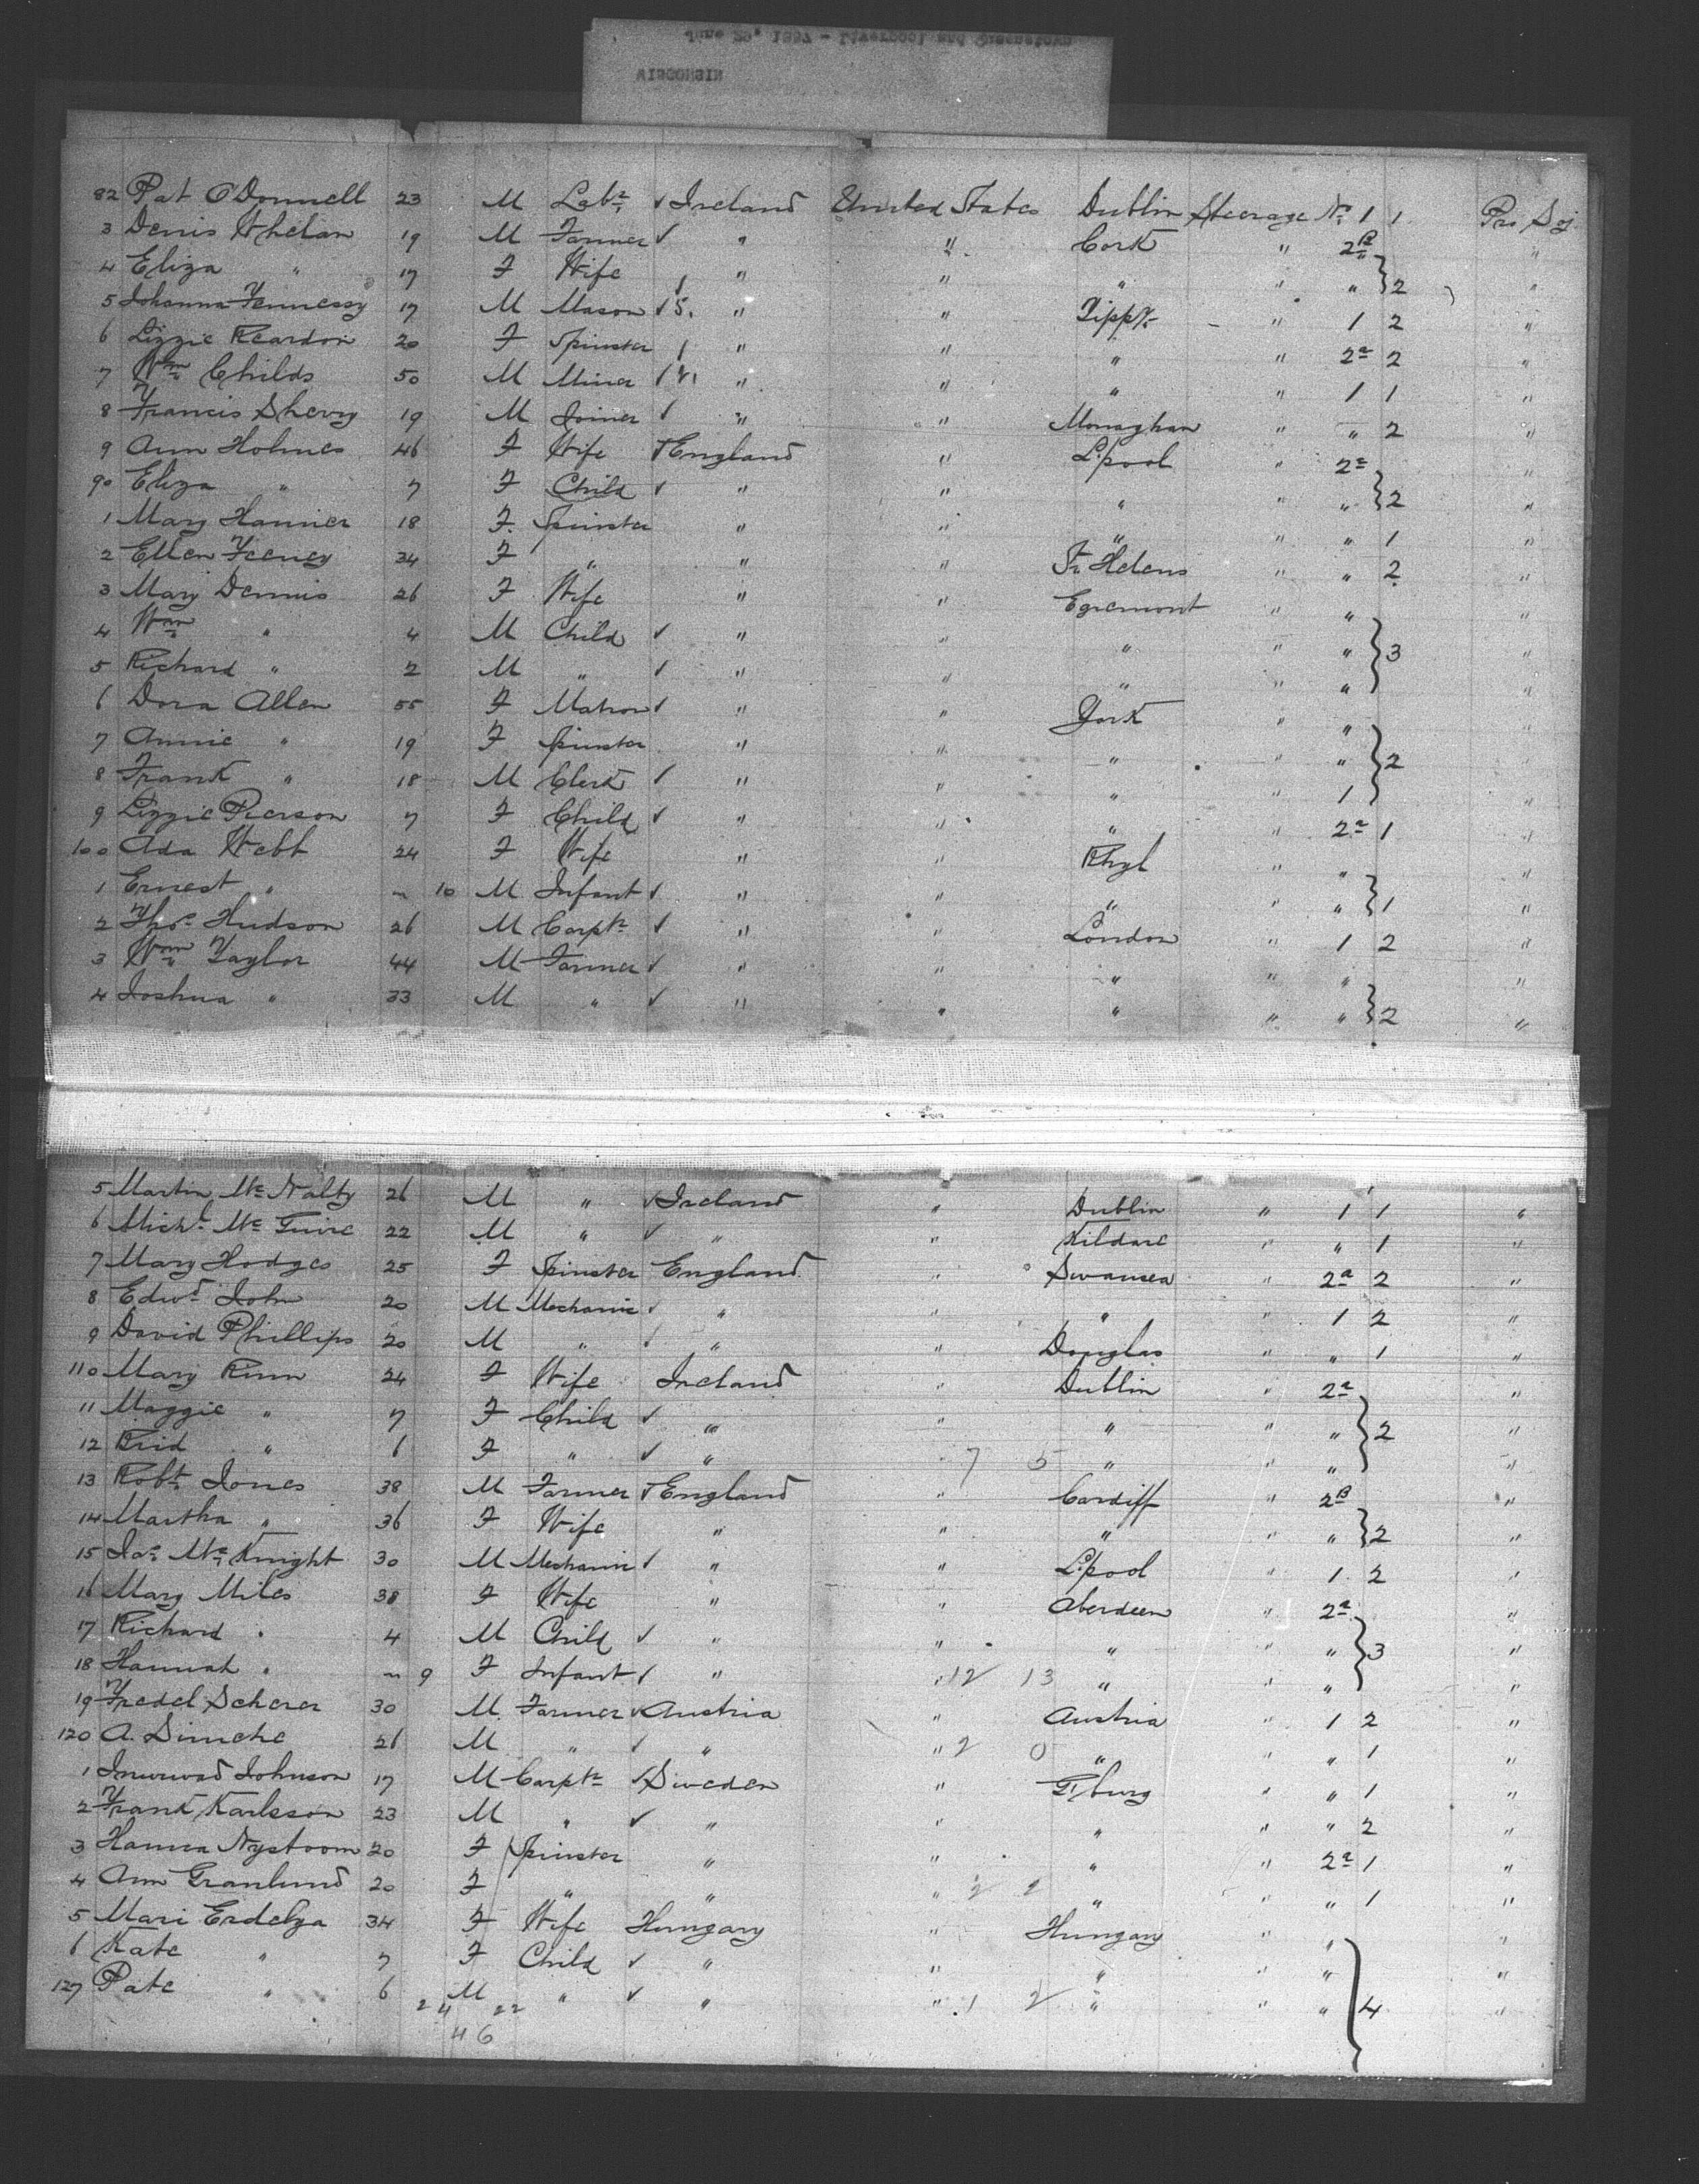 June 25" 1887 - Liverpool and Queenstown
WISCONSIN
82 Pat O'Donnell 23 M Labr ✓ Ireland United States Dublin Steerage No 1 1 Pro Soj
3 Denis Whelan 19 M Farmer ✓ " " Cork " 2B "
4 Eliza " 17 F Wife " " " " " } 2 "
5 Johanna Fennessy 17 M Mason ✓ " " Tippy " 1 2 "
6 Lizzie Reardon 20 F Spinster " " " " 2a 2 "
7 Wm Childs 50 M Miner ✓ " " " " 1 1 "
8 Francis Sherry 19 M Joiner ✓ " " Monaghan " " 2 "
9 Ann Holmes 46 F Wife ✓ England " L'pool " 2a "
90 Eliza " 7 F Child ✓ " " " " " } 2 "
1 Mary Hamier 18 F. Spinster " " " " " 1 "
2 Ellen Feeney 34 F " " " St Helens " " 2 "
3 Mary Dennis 26 F Wife " " Egremont " " "
4 Wm " 4 M Child ✓ " " " " " } 3 "
5 Richard " 2 M " ✓ " " " " " "
6 Dora Allen 55 F Matron ✓ " " York " " "
7 Annie " 19 F Spinster " " " " " } 2 "
8 Frank " 18 M Clerk ✓ " " " " 1 "
9 Lizzie Pierson 7 F Child ✓ " " " " 2a 1 "
100 Ada Webb 24 F Wife " " Rhyl " " "
1 Ernest " 10 M Infant ✓ " " " " " } 1 "
2 Thos Hudson 26 M Carptr ✓ " " London " 1 2 "
3 Wm Taylor 44 M Farmer ✓ " " " " " "
4 Joshua " 33 M " ✓ " " " " " } 2 "
5 Martin Mc Nalty 26 M " ✓ Ireland " Dublin " 1 1 "
6 Michl Mc Guire 22 M " ✓ " " Kildare " " 1 "
7 Mary Hodges 25 F Spinster England " Swansea " 2a 2 "
8 Edwd John 20 M Mechanic ✓ " " " " 1 2 "
9 David Phillips 20 M " ✓ " " Douglas " " 1 "
110 Mary Rinn 24 F Wife Ireland " Dublin " 2a "
11 Maggie " 7 F Child ✓ " " " " " } 2 "
12 Brid " 6 F " ✓ " " 7 5 " " " "
13 Robt Jones 38 M Farmer ✓ England " Cardiff " 2B "
14 Martha " 36 F Wife " " " " " } 2 "
15 Jas Mc Knight 30 M Mechanic ✓ " " L'pool " 1 2 "
16 Mary Miles 38 F Wife " " Aberdeen " 2a "
17 Richard " 4 M Child ✓ " " " " " } 3 "
18 Hannah " 9 F Infant ✓ " " 12 13 " " " "
19 Fredel Scherer 30 M. Farmer ✓ Austria " Austria " 1 2 "
120 A. Simche 26 M " ✓ " " 2 0 " " " 1 "
1 Johnson 17 M Carptr ✓ Sweden " G'burg " " 1 "
2 Frank Karlsson 23 M " ✓ " " " " " 2 "
3 Hanna Nystrom 20 F Spinster " " " " 2a 1 "
4 Ann Granlund 20 F " " " 2 2 " " " 1 "
5 Mari Erdelya 34 F Wife Hungary " Hungary " " "
6 Kate " 7 F Child ✓ " " " " " "
127 Pate " 6 M " ✓ " " 1 2 " " " } 4 "
24 22
46